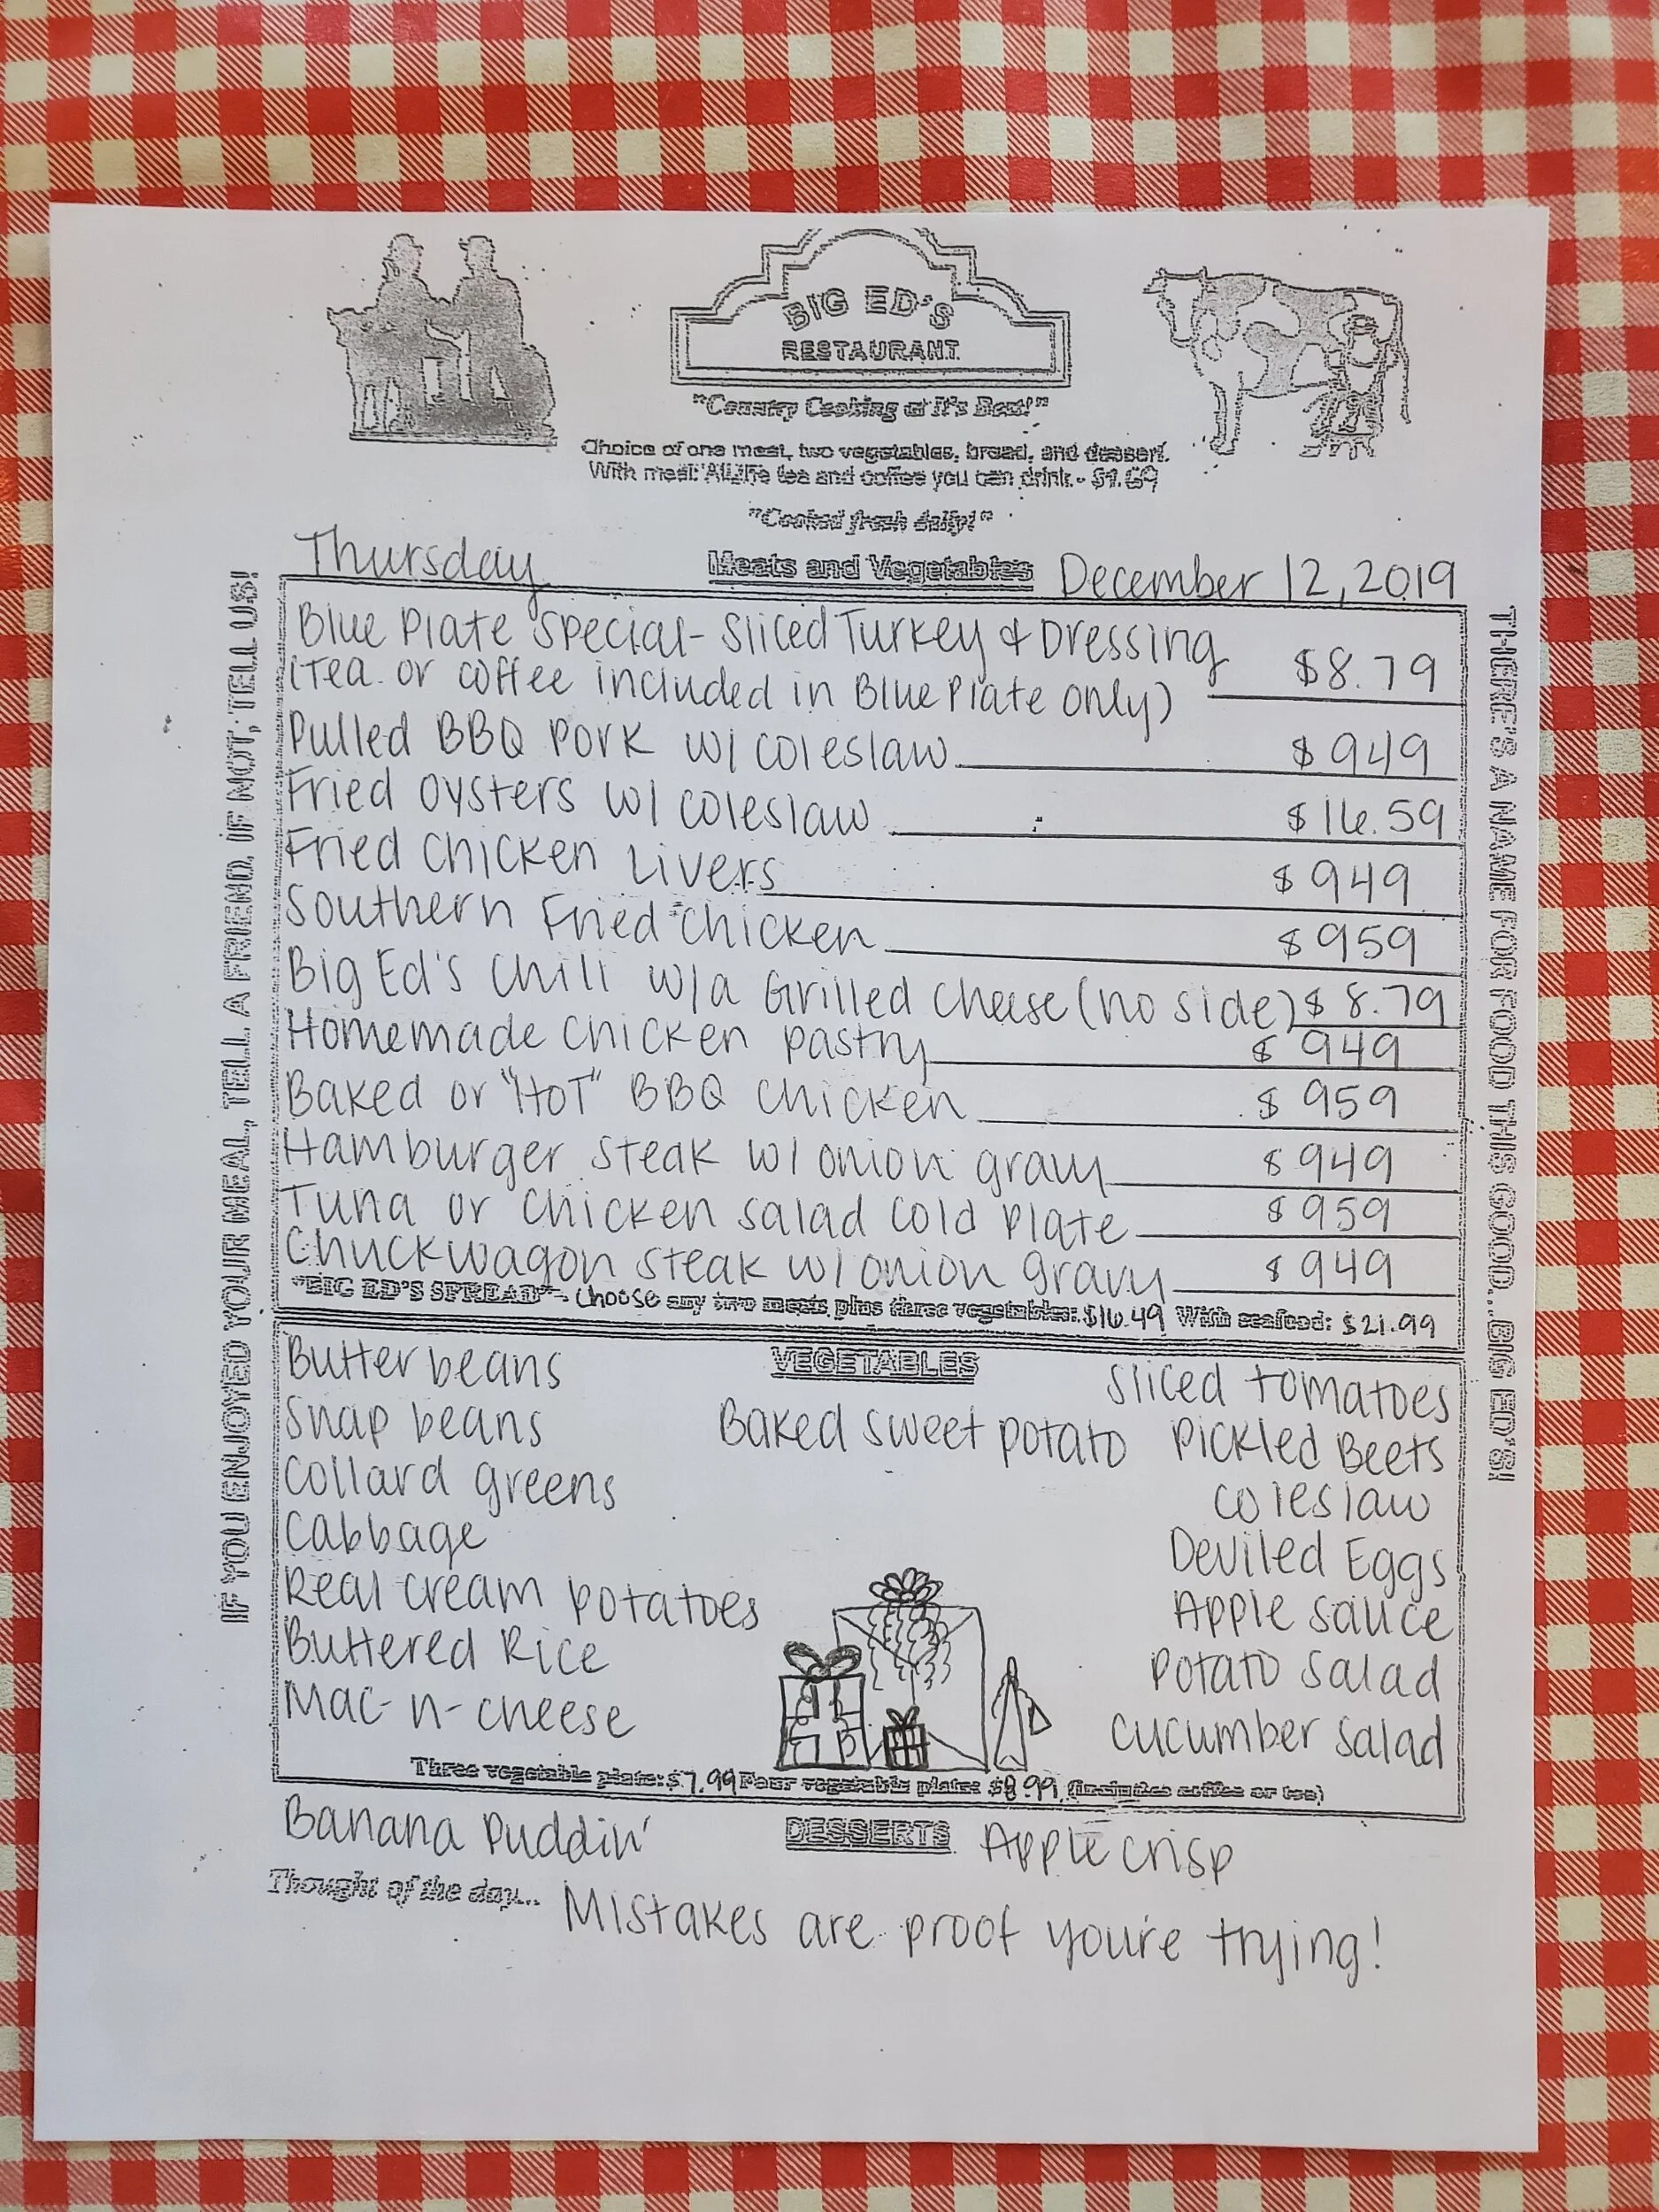 BIG ED'S
RESTAURANT
"Country Cooking at It's Best!"
Choice of one meat, two vegetables, bread, and dessert.
With meal: All the tea and coffee you can drink - $1.69
"Cooked fresh daily!"
Thursday Meats and Vegetables December 12, 2019
Blue Plate Special - Sliced Turkey & Dressing $8.79
(Tea or coffee included in Blue Plate only)
Pulled BBQ Pork w/ coleslaw $949
Fried oysters w/ coleslaw $16.59
Fried chicken Livers $949
Southern Fried chicken $959
Big Ed's chili w/a Grilled cheese (no side) $8.79
Homemade chicken pastry $949
Baked or "HOT" BBQ chicken $959
Hamburger steak w/ onion gravy $949
Tuna or chicken salad cold plate $959
Chuckwagon steak w/ onion gravy $949
"BIG ED'S SPREAD" - choose any two meats plus three vegetables: $16.49 With seafood: $21.99
VEGETABLES
Butter beans
Snap beans
Collard greens
Cabbage
Real cream potatoes
Buttered Rice
Mac-n-cheese
Baked sweet potato
Sliced tomatoes
Pickled Beets
coleslaw
Deviled Eggs
Apple sauce
Potato salad
cucumber salad
Three vegetable plate: $7.99 Four vegetable plate: $8.99 (includes coffee or tea)
Banana Puddin' DESSERTS Apple crisp
Thought of the day... Mistakes are proof you're trying!
IF YOU ENJOYED YOUR MEAL, TELL A FRIEND. IF NOT, TELL US!
THERE'S A NAME FOR FOOD THIS GOOD...BIG ED'S!